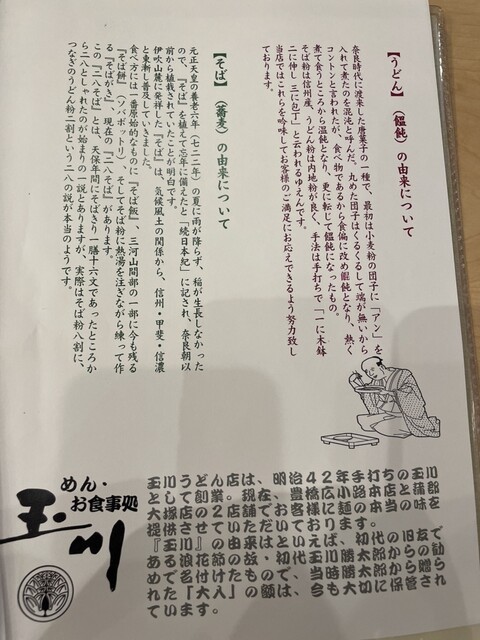 【うどん】(饂飩)の由来について
奈良時代に渡来した唐菓子の一種で、最初は小麦粉の団子に「アン」を
入れて煮たのを混沌と呼んだ。丸めた団子はくるくるして端が無いから
コントンと言われたが、食べ物であるから食偏に改め餛飩となり、熱く
煮て食うところから温飩となり、更に転じて饂飩になったもの。
そば粉は信州産、うどん粉は内地粉が良く、手法は手打ちで「一に木鉢
二に伸し 三に包丁」と云われるゆえんです。
当店ではこれらを吟味してお客様のご満足にお応えできるよう努力致し
ております。
【そば】(蕎麦)の由来について
元正天皇の養老六年(七二二年)の夏に雨が降らず、稲が生長しなかった
ので、『そば』を植えて忘年に備えたと「続日本紀」に記され、奈良朝以
前から植栽されていたことが明白です。
伊吹山麓に発祥した『そば』は、気候風土の関係から、信州・甲斐・信濃
と東漸し普及していきました。
食べ方には一番原始的なものに『そば飯』、三河山間部の一部に今も残る
『そば餅』(ソバボットリ) そしてそば粉に熱湯を注ぎながら練って作
る『そばがき』、現在の『二八そば』があります。
この『二八そば』とは、天保年間にそばきり一膳十六文であったところか
ら二八としゃれたのが始まりの一説とありますが、実際はそば粉八割に、
つなぎのうどん粉二割という二八の説が本当のようです。
めん・
お食事処
玉川
玉川うどん店は、明治42年手打ちの玉川
として創業。現在、豊橋広小路本店と蒲郡
大塚店の2店舗でお客様に麺の本当の味を
提供させていただいております。
『玉川』の由来はといえば、初代の旧友で
ある浪花節の故・初代玉川勝太郎からの勧
めで名付けたもので、当時勝太郎から贈ら
れた「大入」の額は、今も大切に保管され
ています。